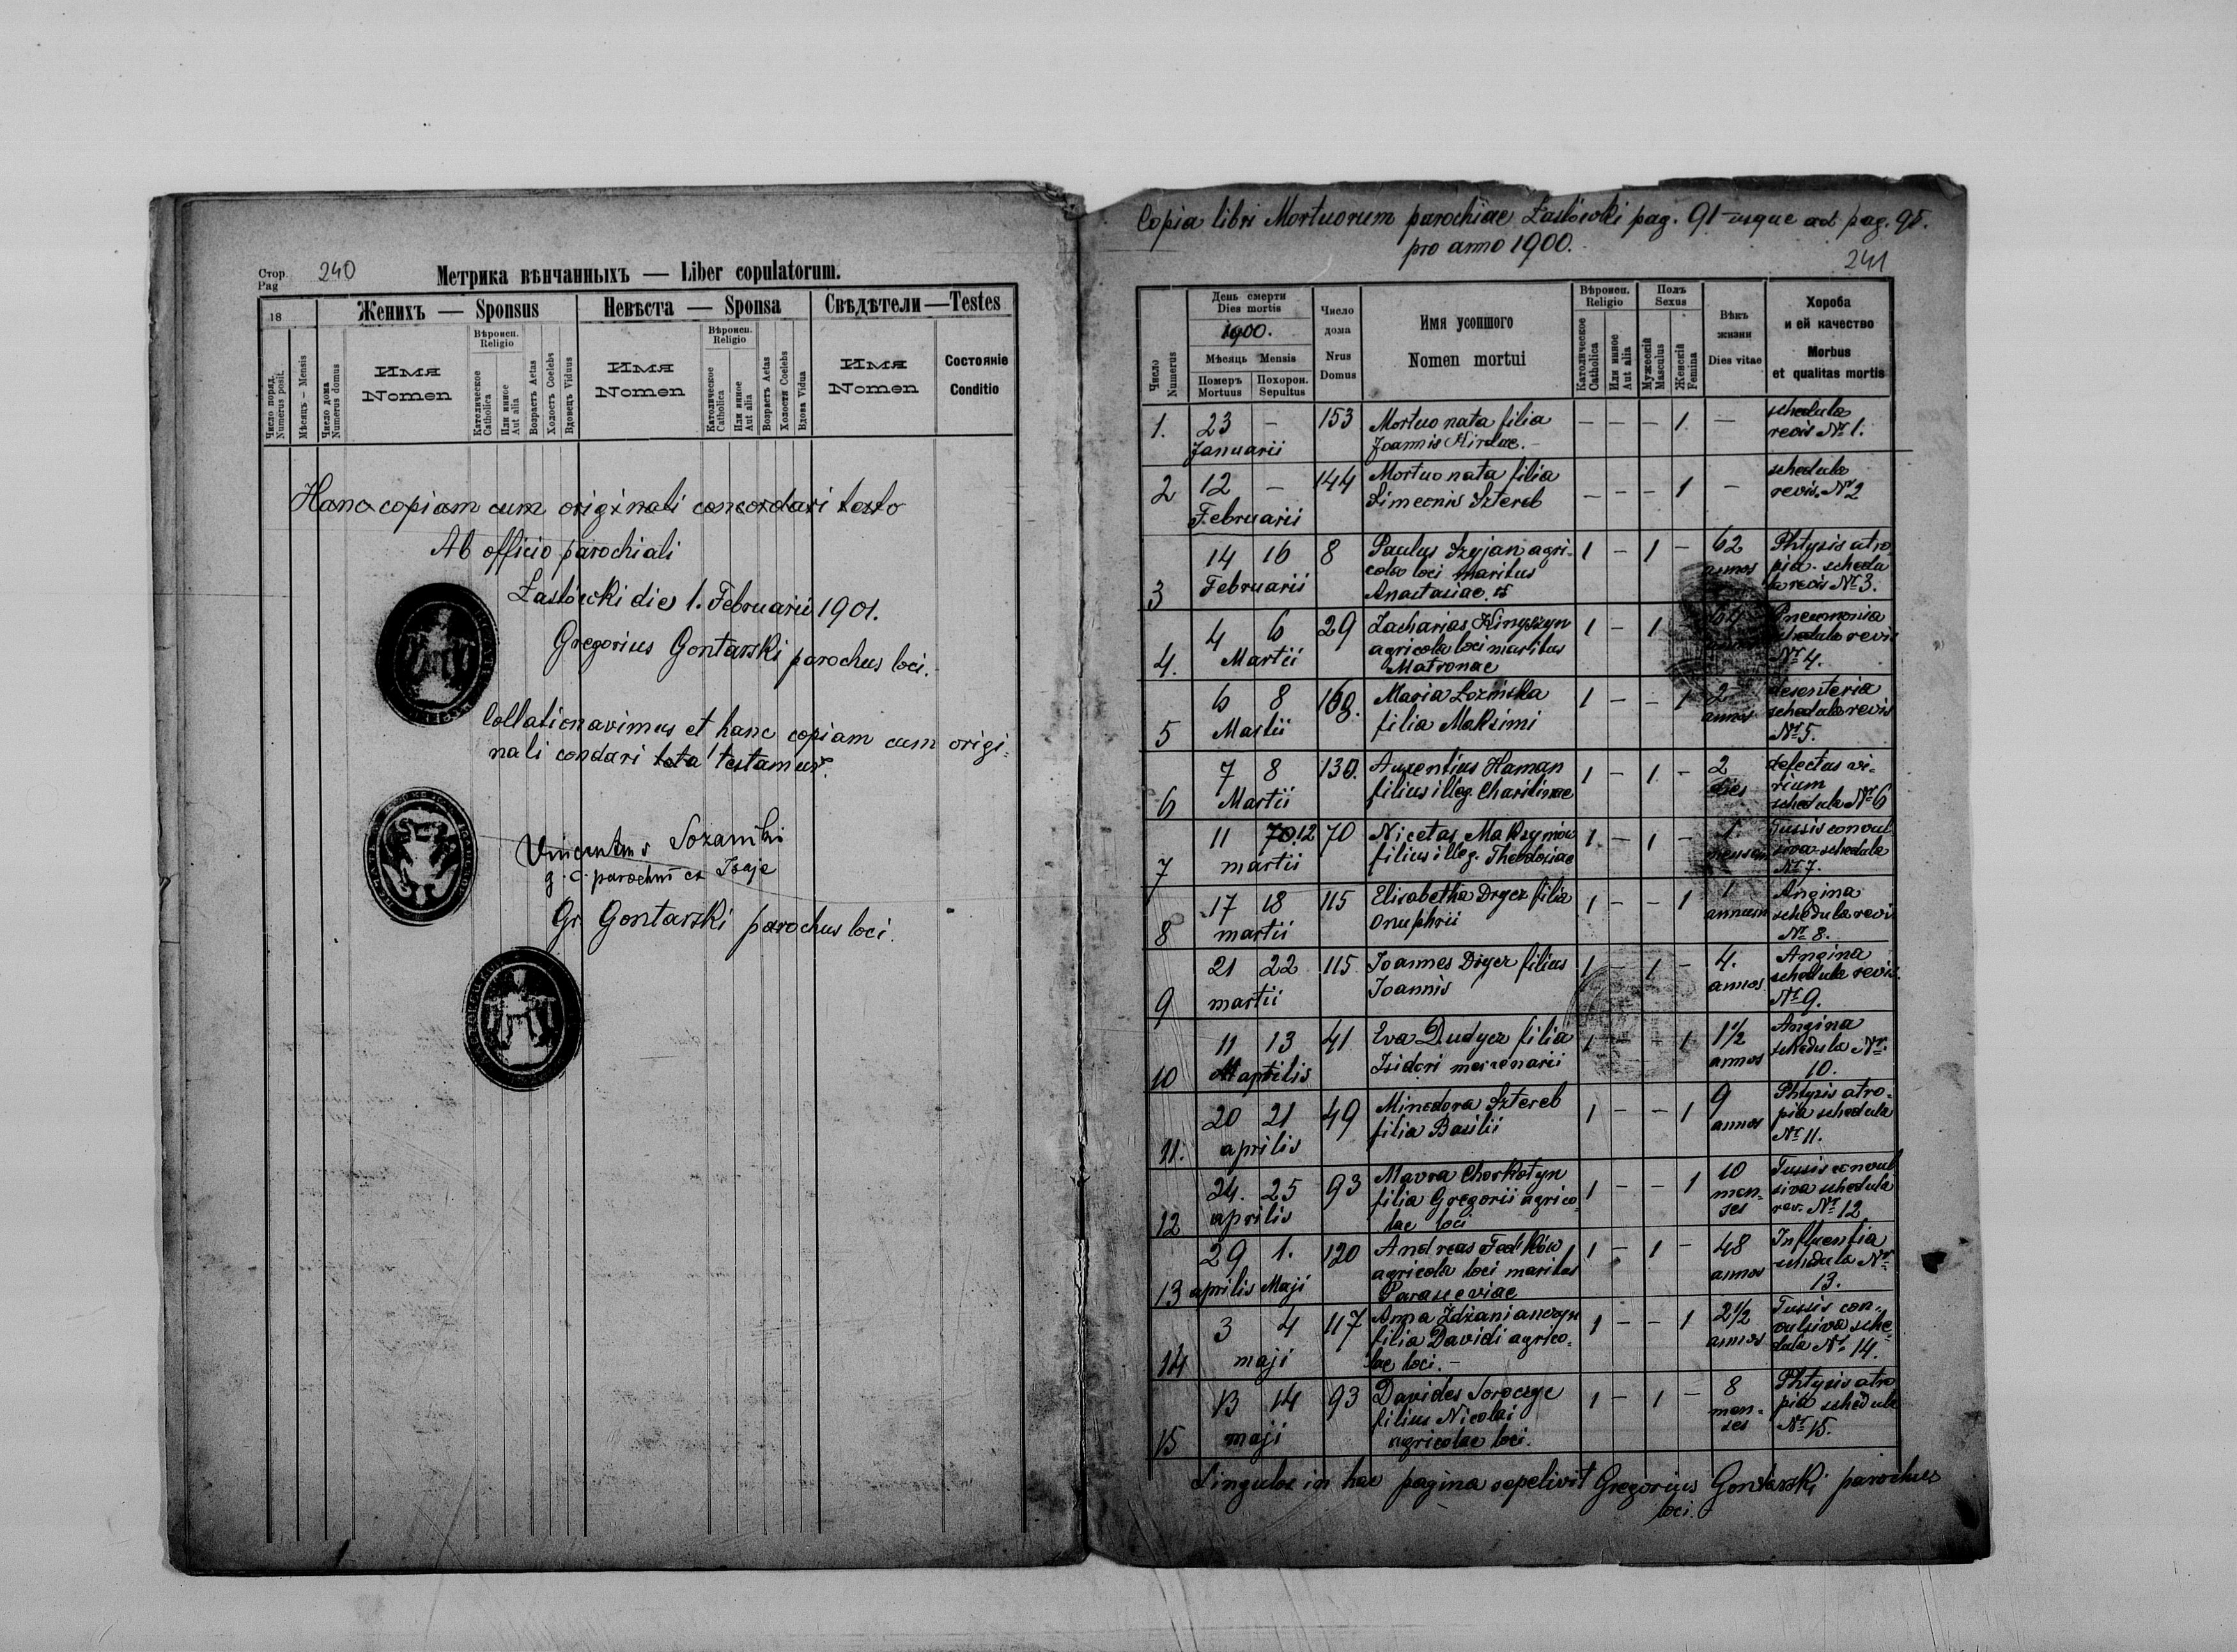 Стор.
Pag
240
Метрика вѣнчанныхъ — Liber copulatorum.
18
Женихъ — Sponsus
Невѣста — Sponsa
Свѣдѣтели — Testes
Число поряд.
Numerus posit.
Мѣсяць — Mensis
Число дома
Numerus domus
Имя
Nomen
Вѣроисп.
Religio
Католическое
Catholica
Или иное
Aut alia
Возрастъ Aetas
Холостъ Coelebs
Вдовецъ Viduus
Имя
Nomen
Вѣроисп.
Religio
Католическое
Catholica
Или иное
Aut alia
Возрастъ Aetas
Холости Coelebs
Вдова Vidua
Имя
Nomen
Состоянiе
Conditio
Hanc copiam cum originali concordari testo
Ab officio parochiali
Zastówki die 1. Februarii 1901.
Gregorius Gontarski parochus loci.
Collationavimus et hanc copiam cum origi-
nali condari testamur.
Vincentius
g. c. parochus ex Iwaje
Gr. Gontarski parochus loci.
Copia libri Mortuorum parochiae Zastówki pag. 91 usque ad pag. 95.
pro anno 1900.
241
Число
Numerus
День смерти
Dies mortis
1900.
Мѣсяць Mensis
Померъ
Mortuus
Похорон.
Sepultus
Число
дома
Nrus
Domus
Имя усопшого
Nomen mortui
Вѣроисп.
Religio
Католическое
Catholica
Или иное
Aut alia
Полъ
Sexus
Мужескiй
Masculus
Женскiй
Femina
Вѣкъ
жизни
Dies vitae
Хороба
и ей качество
Morbus
et qualitas mortis
1. 23 – 153 Mortuo nata filia – – – 1 – schedula
Januarii Joannis revis № 1.
2 12 – 144 Mortuo nata filia – – – 1 – schedula
Februarii Simeonis Sztereb revis. № 2
3 14 16 8 Paulus Szyjan agri- 1 – 1 – 62 Phtysis atro
Februarii cola loci maritus annos pia schedu
Anastasiae la revis № 3.
4. 4 6 29 Zacharias Kinyszyn 1 – 1 – Pneumonia
Martii agricola loci maritus schedula revis
Matronae № 4.
5 6 8 Maria Lozinska 1 – – 1 2 desenteria
Martii filia Maksimi annos schedula revis
№ 5.
6 7 8 130. Auxentius Haman 1 – 1 – 2 defectus vi-
Martii filius illeg. Charitinae dies rium
schedula № 6
7 11 12 70 Nicetas Maksymów 1 – 1 – 1 Tussis convul
martii filius illeg. Theodosiae mensem siva schedula
№ 7.
8 17 18 115 Elisabetha Dryer filia 1 – – 1 1 Angina
martii Onuphrii annum schedula revis
№ 8.
9 21 22 115 Joannes Dryer filius 1 – 1 – 4. Angina
martii Joannis annos schedula revis.
№ 9.
10 11 13 41 Eva Dudyer filia 1 – – 1 1½ Angina
aprilis Isidori mercenarii annos schedula №
10.
11. 20 21 49 Minodora Sztereb 1 – – 1 9 Phtysis atro-
aprilis filia Basilii annos pia schedula
№ 11.
12 24. 25 93 Mavra Chorkotyn 1 – – 1 10 Tussis convul
aprilis filia Gregorii agrico- men- siva schedula
lae loci ses rev. № 12
13 29 1. 120 Andreas Fedków 1 – 1 – 48 Influentia
aprilis Maji agricola loci maritus annos schedula №
Parasceviae 13.
14 3 4 117 Anna Zdzanianczyn 1 – – 1 2½ Tussis con-
maji filia Davidi agrico- annos vulsiva sche
lae loci. – dula № 14.
15 13 14 93 Davides Soroczyc 1 – 1 – 8 Phtysis atro
maji filius Nicolai men- pia schedula
agricolae loci. ses № 15.
Singulos in hac pagina sepelivit Gregorius Gontarski parochus
loci.